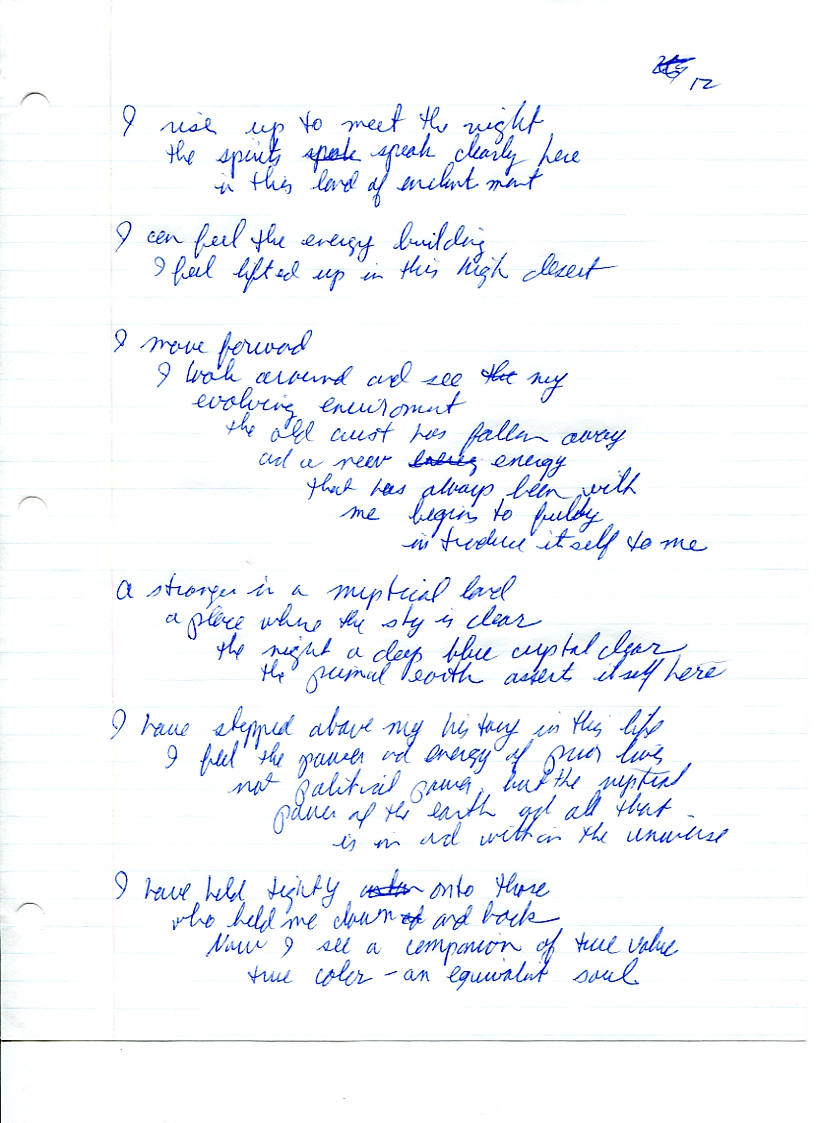 12
I rise up to meet the night
the spirits speak clearly here
in this land of enchantment
I can feel the energy building
I feel lifted up in this high desert
I move forward
I look around and see my
evolving enviroment
the old crust has fallen away
and a new energy
that has always been with
me begins to fully
introduce itself to me
a stranger in a mystical land
a place where the sky is clear
the night a deep blue crystal clear
the primal earth assert itself here
I have stepped above my history in this life
I feel the power and energy of prior lives
not political power, but the mystical
power of the earth and all that
is in and within the universe
I have held tightly onto those
who held me down and back
Now I see a companion of true value
true color - an equivalent soul